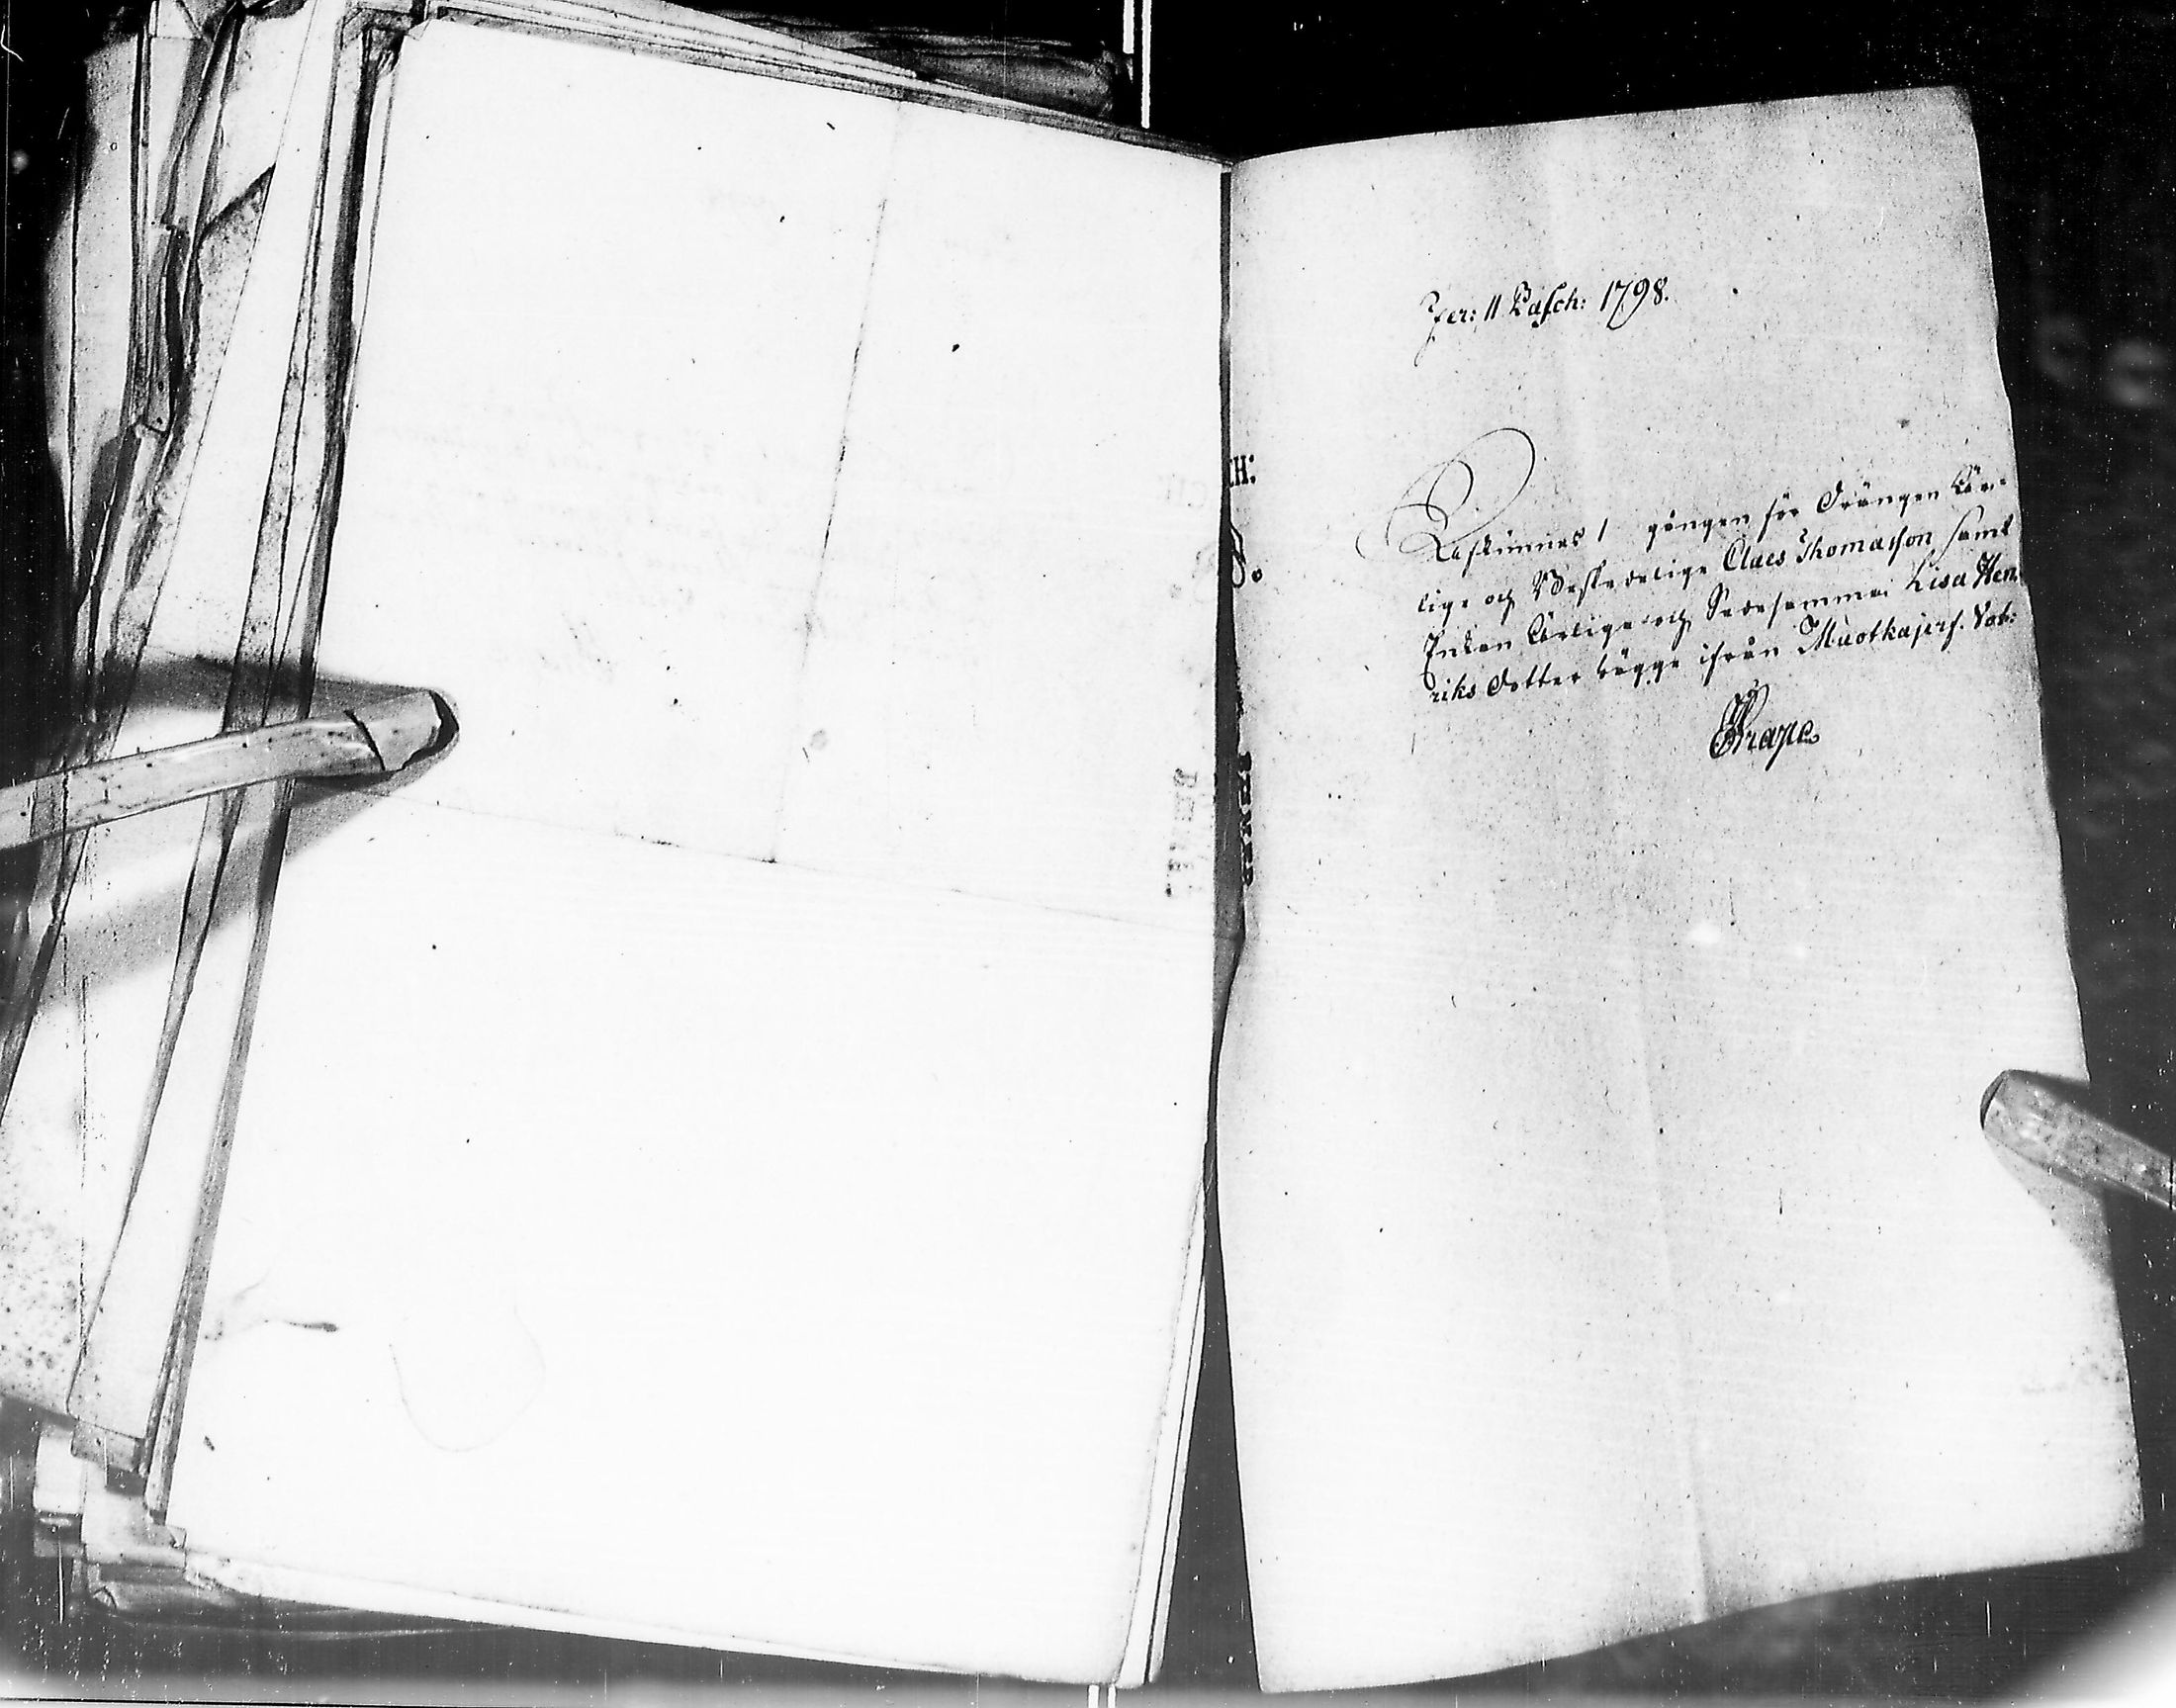 Fer: II Pasch: 1798.
CH:
8.
Lyskunnes 1 gången för Drängen Ähr-
lige och Beskedelige Claes Thomasson samt
Enkan Ährliga och Sedesamma Lisa Hen-
riks dotter bägge ifrån Muotkajerf. Vot:
Krape